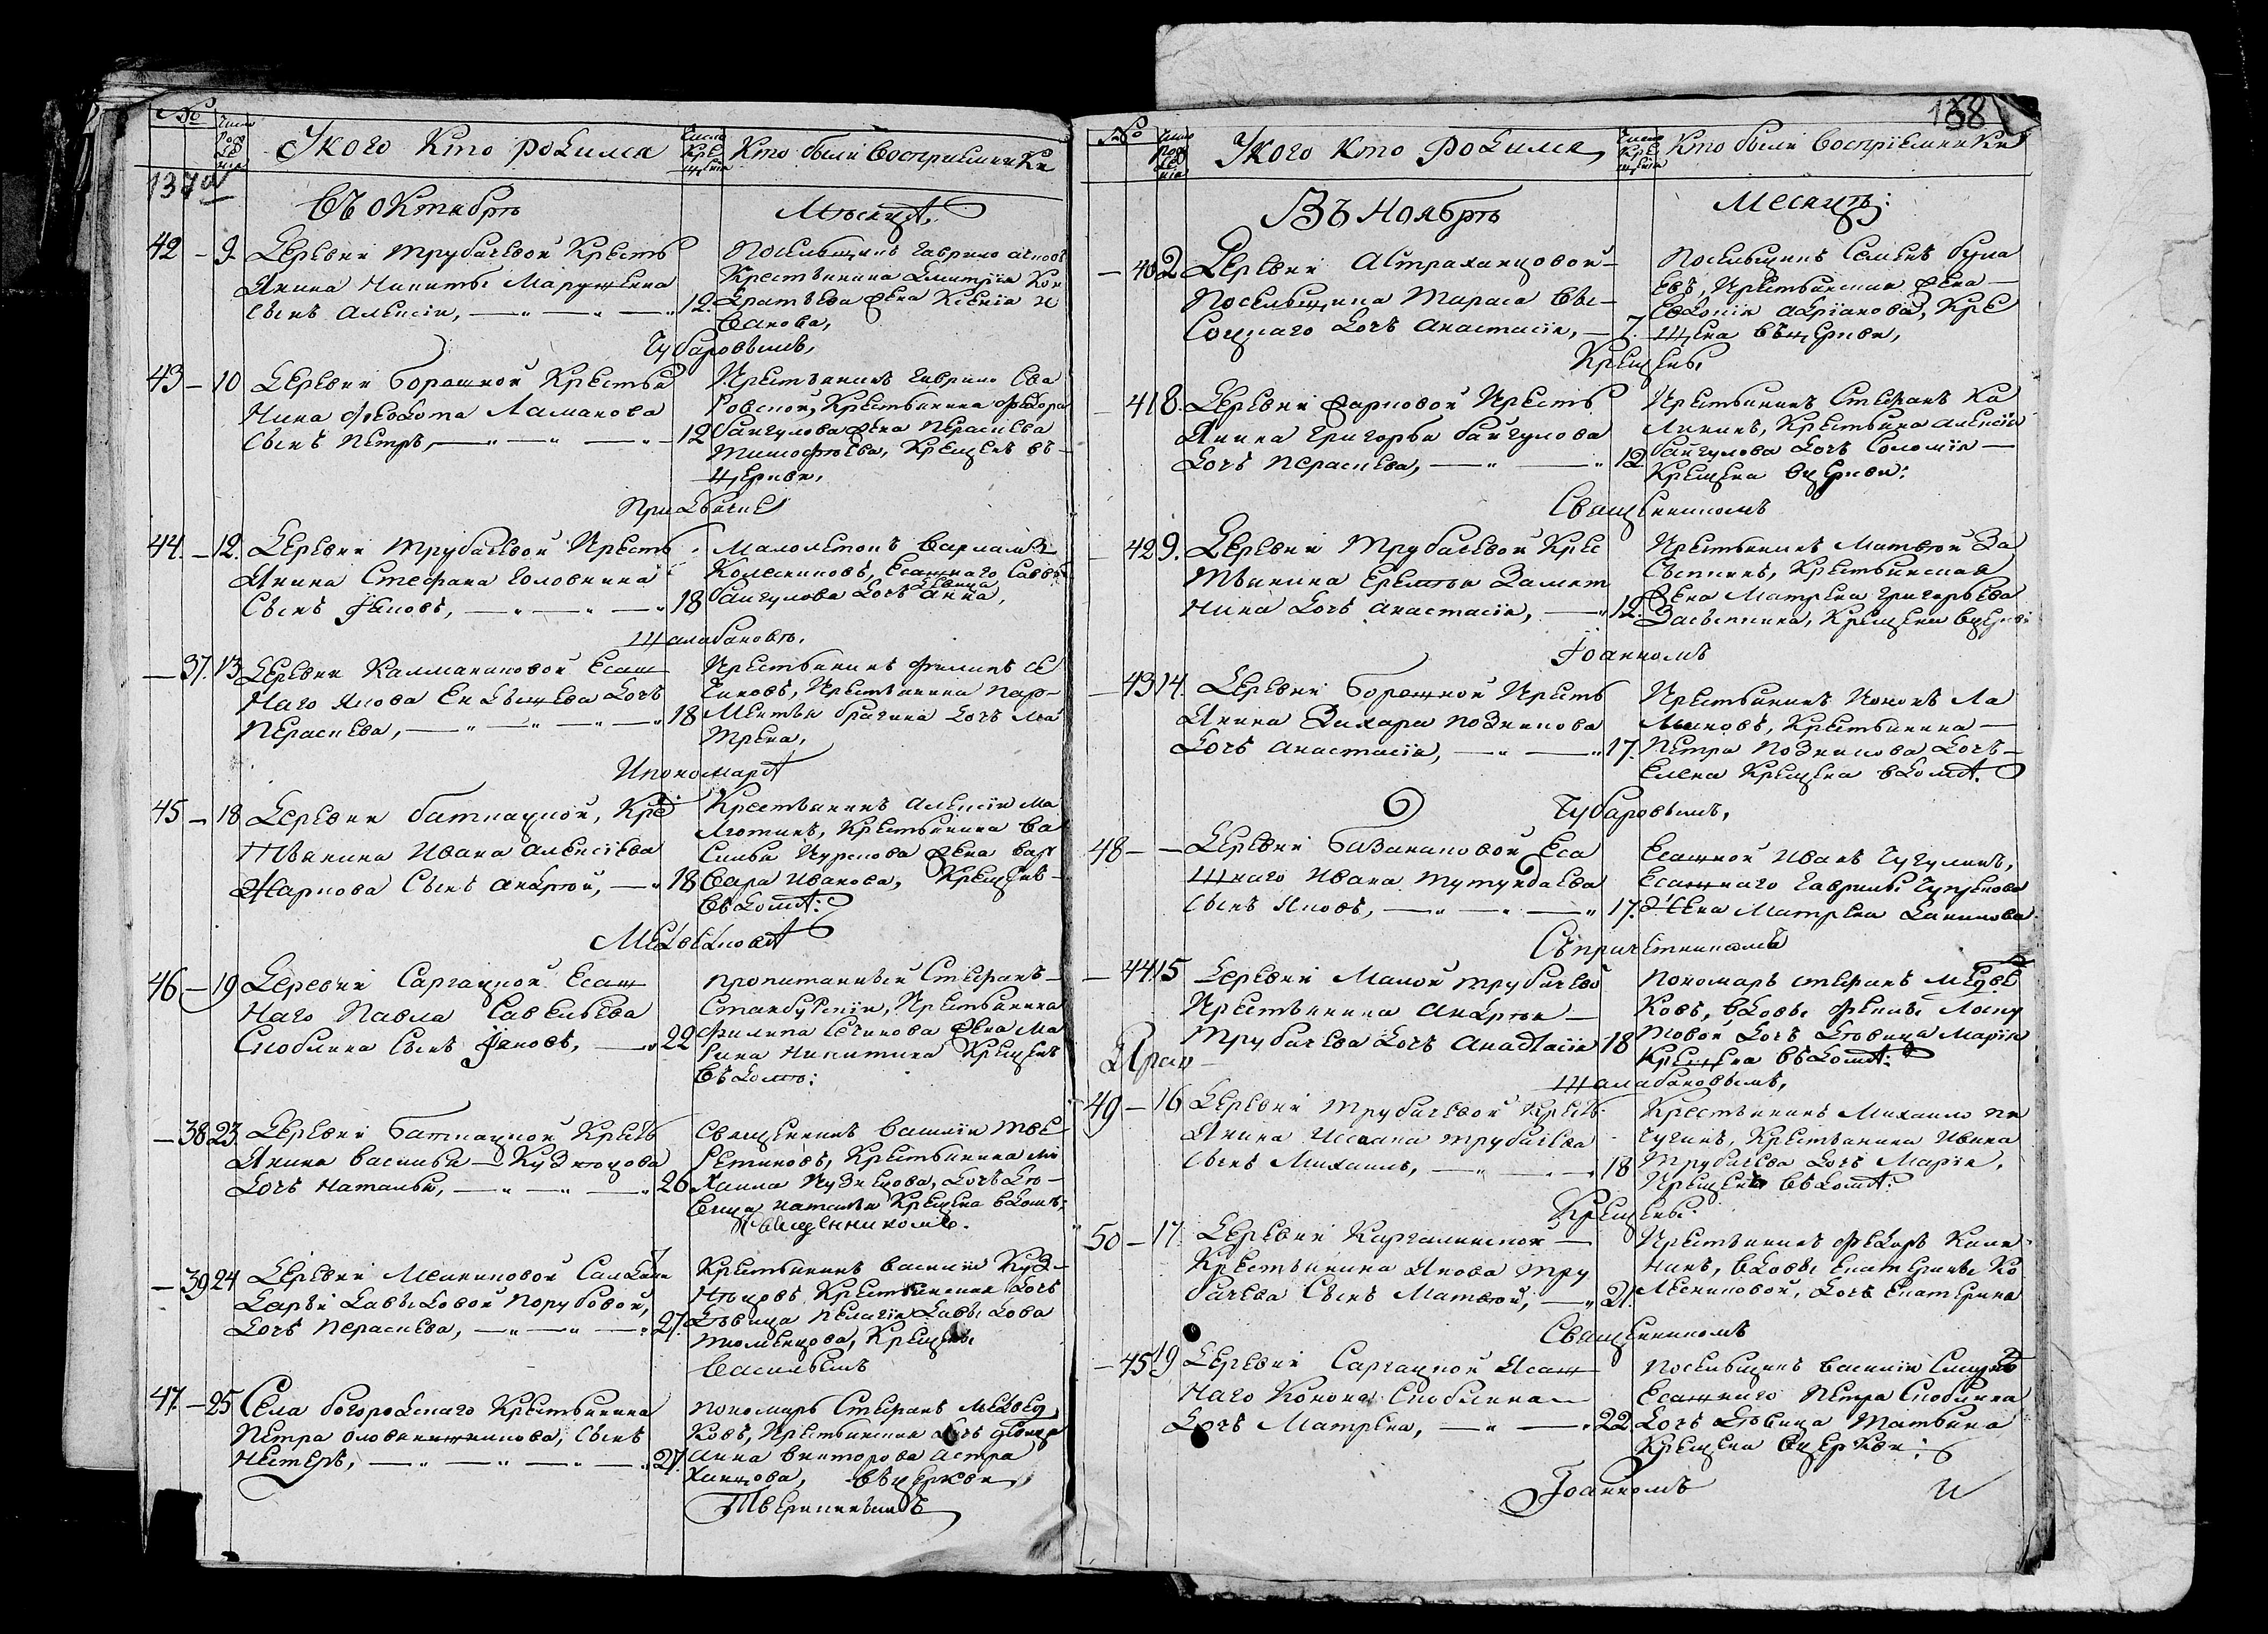 №
Число рождения
У кого кто родился
Число крещения
Кто были восприемники
137 об
Въ октябрѣ
Мѣсяцѣ
42 – 9. Деревни Трубачевой кресть
янина Никиты Марушина
сынъ Алексій, — „ — „ — „ 12.
Посельщикъ Гаврило
крестьянина Дмитрія Кон
дратьева жена Ксенія И
ванова,
Чубаровымъ,
43 – 10 Деревни Боражной крестья
нина Федота Ламанова
сынъ Петръ, — „ — „ — „ – 12
Крестьянинъ Гаврило Ска
ковской, крестьянина Федора
Байгулова жена Параскева
Тимофѣева, крещенъ въ –
церкви,
При дьячке
44 – 12. Деревни Трубачевой кресть
янина Стефана Головнина
сынъ Іяковъ, — „ — „ — „ 18
Малолетокъ Варламъ
Колесниковъ, есашнаго Саввы
девица
Байгулова дочь Анна,
Шалабановѣ,
– 37. 13 Деревни Калмаковой есаш
наго Якова Ен дочь
Параскева, — „ — „ — „ 18
Крестьянинъ Филипъ Се
чиновъ, крестьянина Пар–
ментья Брагина дочь Ма
трена,
И пономарѣ
45 – 18 Деревни Баткацкой, кре
стьянина Ивана Алексіева
Жаркова сынъ Андрей, — „ 18
Крестьянинъ Алексій Ма
лютинъ, крестьянина Ва
силья Чуркова жена Вар
вара Иванова, крещенъ –
въ домѣ:
Медведковѣ
46 – 19 Деревни Саргацкой есаш
наго Павла Савельева
Скоблина сынъ Іяковъ, — „ 22
Пропитанный Стефанъ –
Станбурскій, крестьянина
Филипа Сечинова жена Ма
рина Никитина крещенъ
въ домѣ:
– 38 23. Деревни Баткацкой кресть
янина Василья – Кузнецова
дочь Наталья, — „ — „ — „ 26
Священникъ Василій Тве
ретиновъ, крестьянина Ми
хаила Кузнецова, дочь де–
вица Наталья крещена в доме:
Священникомъ.
– 39 24 Деревни Меликовой солдатки
Дарьи Давыдовой Порубовой,
дочь Параскева, — „ — „ — „ 27.
Крестьянинъ Василій Куз–
нецовъ крестьянская дочь
девица Пелагія Давыдова
Тюменцова, крещены
Васильемъ
47. – 25 Села Богородскаго крестьянина
Петра Оловянишникова, сынъ
Нестеръ, — „ — „ — „ — „ 27.
Пономарь Стефанъ Медвед
ковъ, крестьянская дочь девица
Анна Викторова Астра
ханцова, въ церкви,
Тверитинымъ
138
№
Число рождения
У кого кто родился,
Число крещения
Кто были восприемники
Въ Ноябрѣ
Месяцѣ:
– 40 2 Деревни Астраханцовой –
посельщика Тараса Вы–
соцкаго дочь Анастасія, — 7.
Посельщикъ Семенъ Була
евъ, крестьянская жена –
Евдокія Адріанова, кре
щена въ церкви,
Крещены
– 41 8. Деревни Жарковой кресть
янина Григорья Байгулова
дочь Параскева, — „ — „ 12
Крестьянинъ Стефанъ Ка
лининъ, крестьянина Алексія
Байгулова дочь Соломія –
крещена в церкви:
Священникомъ
– 42 9. Деревни Трубачевой крес
тьянина Еремѣя Замят
нина дочь Анастасія, — „ 12.
Крестьянинъ Матвей За
сыпкинъ, крестьянская
жена Матрена Григорьева
Засыпкина, крещена в церкви
Іоанномъ
– 43 14. Деревни Боражной кресть
янина Захара Познякова
дочь Анастасія, — „ — „ 17.
Крестьянинъ Кононъ Ла
мановъ, крестьянина –
Петра Познякова дочь –
Елена крещена в домѣ.
Чубаровымъ,
48 – – Деревни Базанаковой еса
шнаго Ивана Тутундаева
сынъ Яковъ, — „ — „ — „ 17.
Есашной Иванъ Чугулинъ,
есашнаго Гаврилы Чупрекова
жена Матрена Данилова
Съ причетникомъ
– 44 15 Деревни Малой Трубачево
крестьянина Андрея –
Трубачева дочь Анастасія 18
Пономарь Стефанъ Медвед
ковъ, вдовы Феклы Локу
товой дочь девица Марія
крещена въ домѣ:
Шалабановымъ,
49 – 16 Деревни Трубачевой кресть
янина Исаака Трубачева
сынъ Михаилъ, — „ — „ 18
Крестьянинъ Михаило Пи
чугинъ, крестьянина Ивана
Трубачева дочь Марія,
крещенъ въ домѣ:
Крещены
50 – 17. Деревни Каргалинской –
крестьянина Якова Тру
бачева сынъ Матвей, — „ 21.
Крестьянинъ Федоръ Кали
нинъ, вдовы Екатерины Ко
лесниковой, дочь Екатерина
Священникомъ
– 45 19 Деревни Саргацкой ясаш
наго Конона Скоблина –
дочь Матрена, — „ — „ 22
Посельщикъ Василій
есашнаго Петра Скоблина
дочь девица Татьяна
крещена в церкви:
Іоанномъ
И